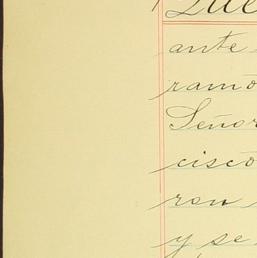 Que
ante
ramo
Señor
cisco
ron
y se